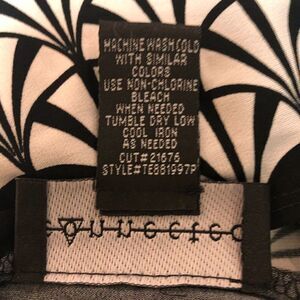 MACHINE WASH COLD
WITH SIMILAR
COLORS
USE NON-CHLORINE
BLEACH
WHEN NEEDED
TUMBLE DRY LOW
COOL IRON
AS NEEDED
CUT#21676
STYLE#TE881997P